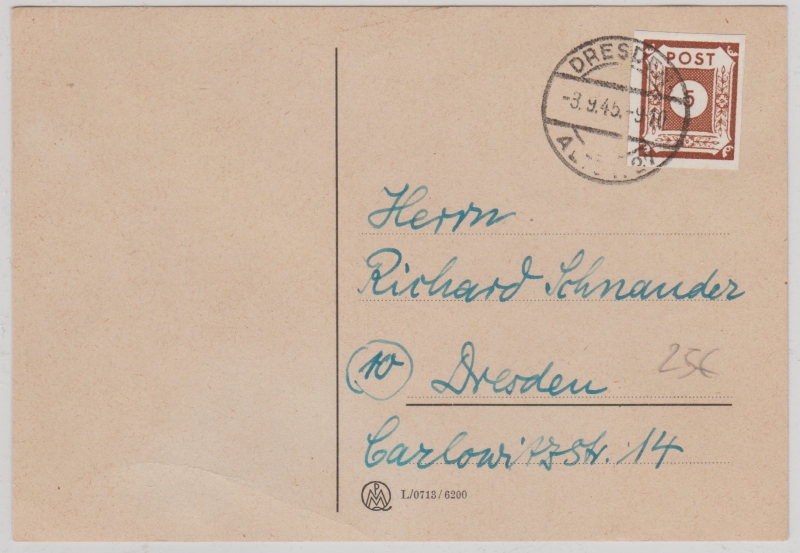 DRESDEN
-3.9.45.-9
ALTSTADT
POST
5
Herrn
Richard Schnander
25€
(10) Dresden
Carlowitzstr. 14
L/0713/6200